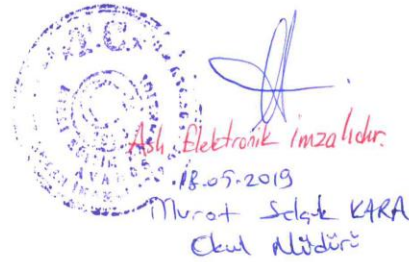 T.C.
Aslı Elektronik imzalıdır.
18.05.2019
Murat Selçuk KARA
Okul Müdürü